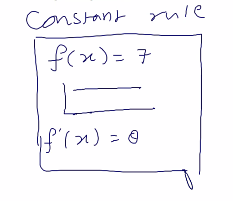 constant rule
f(x) = 7
f'(x) = 0